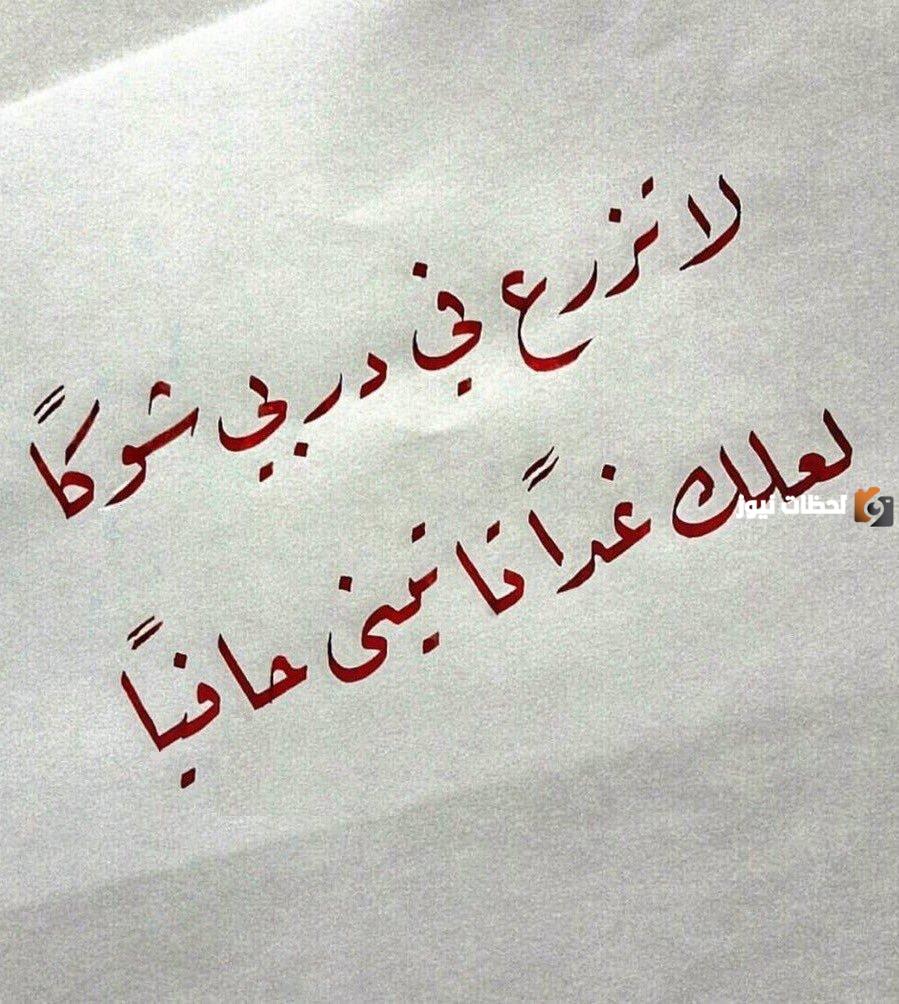 لا تزرع في دربي شوكاً
لعلك غداً تاتيني حافياً
لحظات نيوز